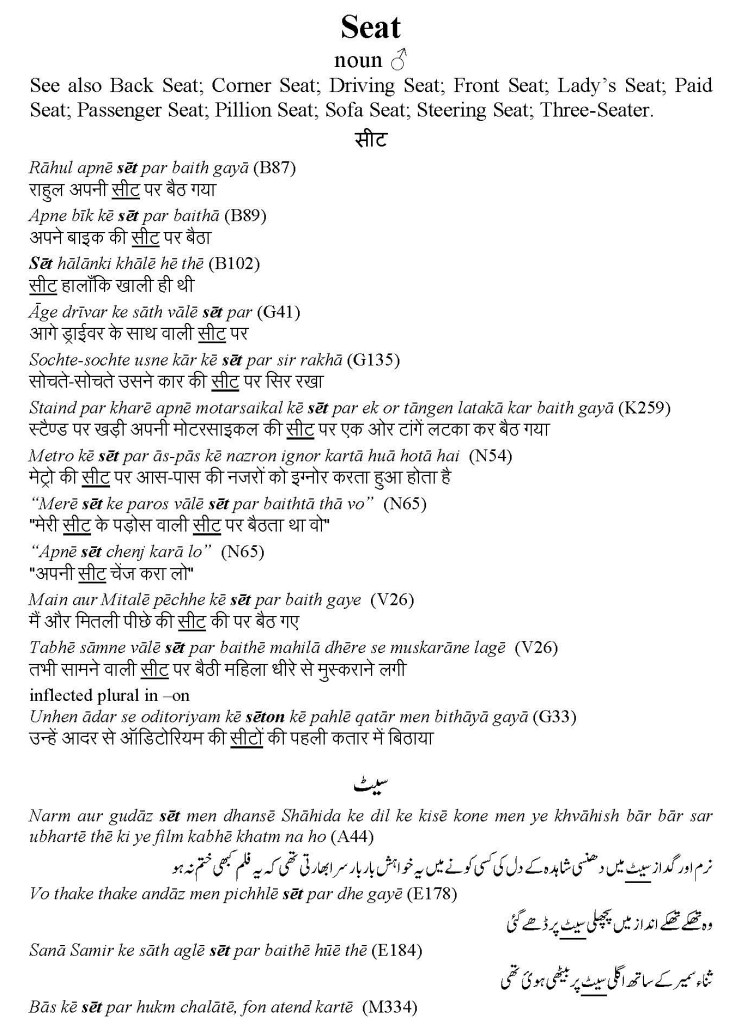 Seat
noun ♂
See also Back Seat; Corner Seat; Driving Seat; Front Seat; Lady’s Seat; Paid
Seat; Passenger Seat; Pillion Seat; Sofa Seat; Steering Seat; Three-Seater.
सीट
Rāhul apnē sēt par baith gayā (B87)
राहुल अपनी सीट पर बैठ गया
Apne bīk kē sēt par baithā (B89)
अपने बाइक की सीट पर बैठा
Sēt hālānki khālē hē thē (B102)
सीट हालाँकि खाली ही थी
Āge drīvar ke sāth vālē sēt par (G41)
आगे ड्राईवर के साथ वाली सीट पर
Sochte-sochte usne kār kē sēt par sir rakhā (G135)
सोचते-सोचते उसने कार की सीट पर सिर रखा
Staind par kharē apnē motarsaikal kē sēt par ek or tāngen latakā kar baith gayā (K259)
स्टैण्ड पर खड़ी अपनी मोटरसाइकल की सीट पर एक ओर टांगें लटका कर बैठ गया
Metro kē sēt par ās-pās kē nazron ignor kartā huā hotā hai (N54)
मेट्रो की सीट पर आस-पास की नजरों को इग्नोर करता हुआ होता है
“Merē sēt ke paros vālē sēt par baithtā thā vo” (N65)
"मेरी सीट के पड़ोस वाली सीट पर बैठता था वो"
“Apnē sēt chenj karā lo” (N65)
"अपनी सीट चेंज करा लो"
Main aur Mitalē pēchhe kē sēt par baith gaye (V26)
मैं और मितली पीछे की सीट की पर बैठ गए
Tabhē sāmne vālē sēt par baithē mahilā dhēre se muskarāne lagē (V26)
तभी सामने वाली सीट पर बैठी महिला धीरे से मुस्कराने लगी
inflected plural in –on
Unhen ādar se oditoriyam kē sēton kē pahlē qatār men bithāyā gayā (G33)
उन्हें आदर से ऑडिटोरियम की सीटों की पहली कतार में बिठाया
سیٹ
Narm aur gudāz sēt men dhansē Shāhida ke dil ke kisē kone men ye khvāhish bār bār sar
ubhartē thē ki ye film kabhē khatm na ho (A44)
نرم اور گداز سیٹ میں دھنسی شاہدہ کے دل کی کسی کونے میں یہ خواہش بار بار سر ابھارتی تھی کہ یہ فلم کبھی ختم نہ ہو
Vo thake thake andāz men pichhlē sēt par dhe gayē (E178)
وہ تھکے تھکے انداز میں پچھلی سیٹ پر ڈھے گئی
Sanā Samir ke sāth aglē sēt par baithē hūē thē (E184)
ثناء سمیر کے ساتھ اگلی سیٹ پر بیٹھی ہوئی تھی
Bās kē sēt par hukm chalātē, fon atend kartē (M334)